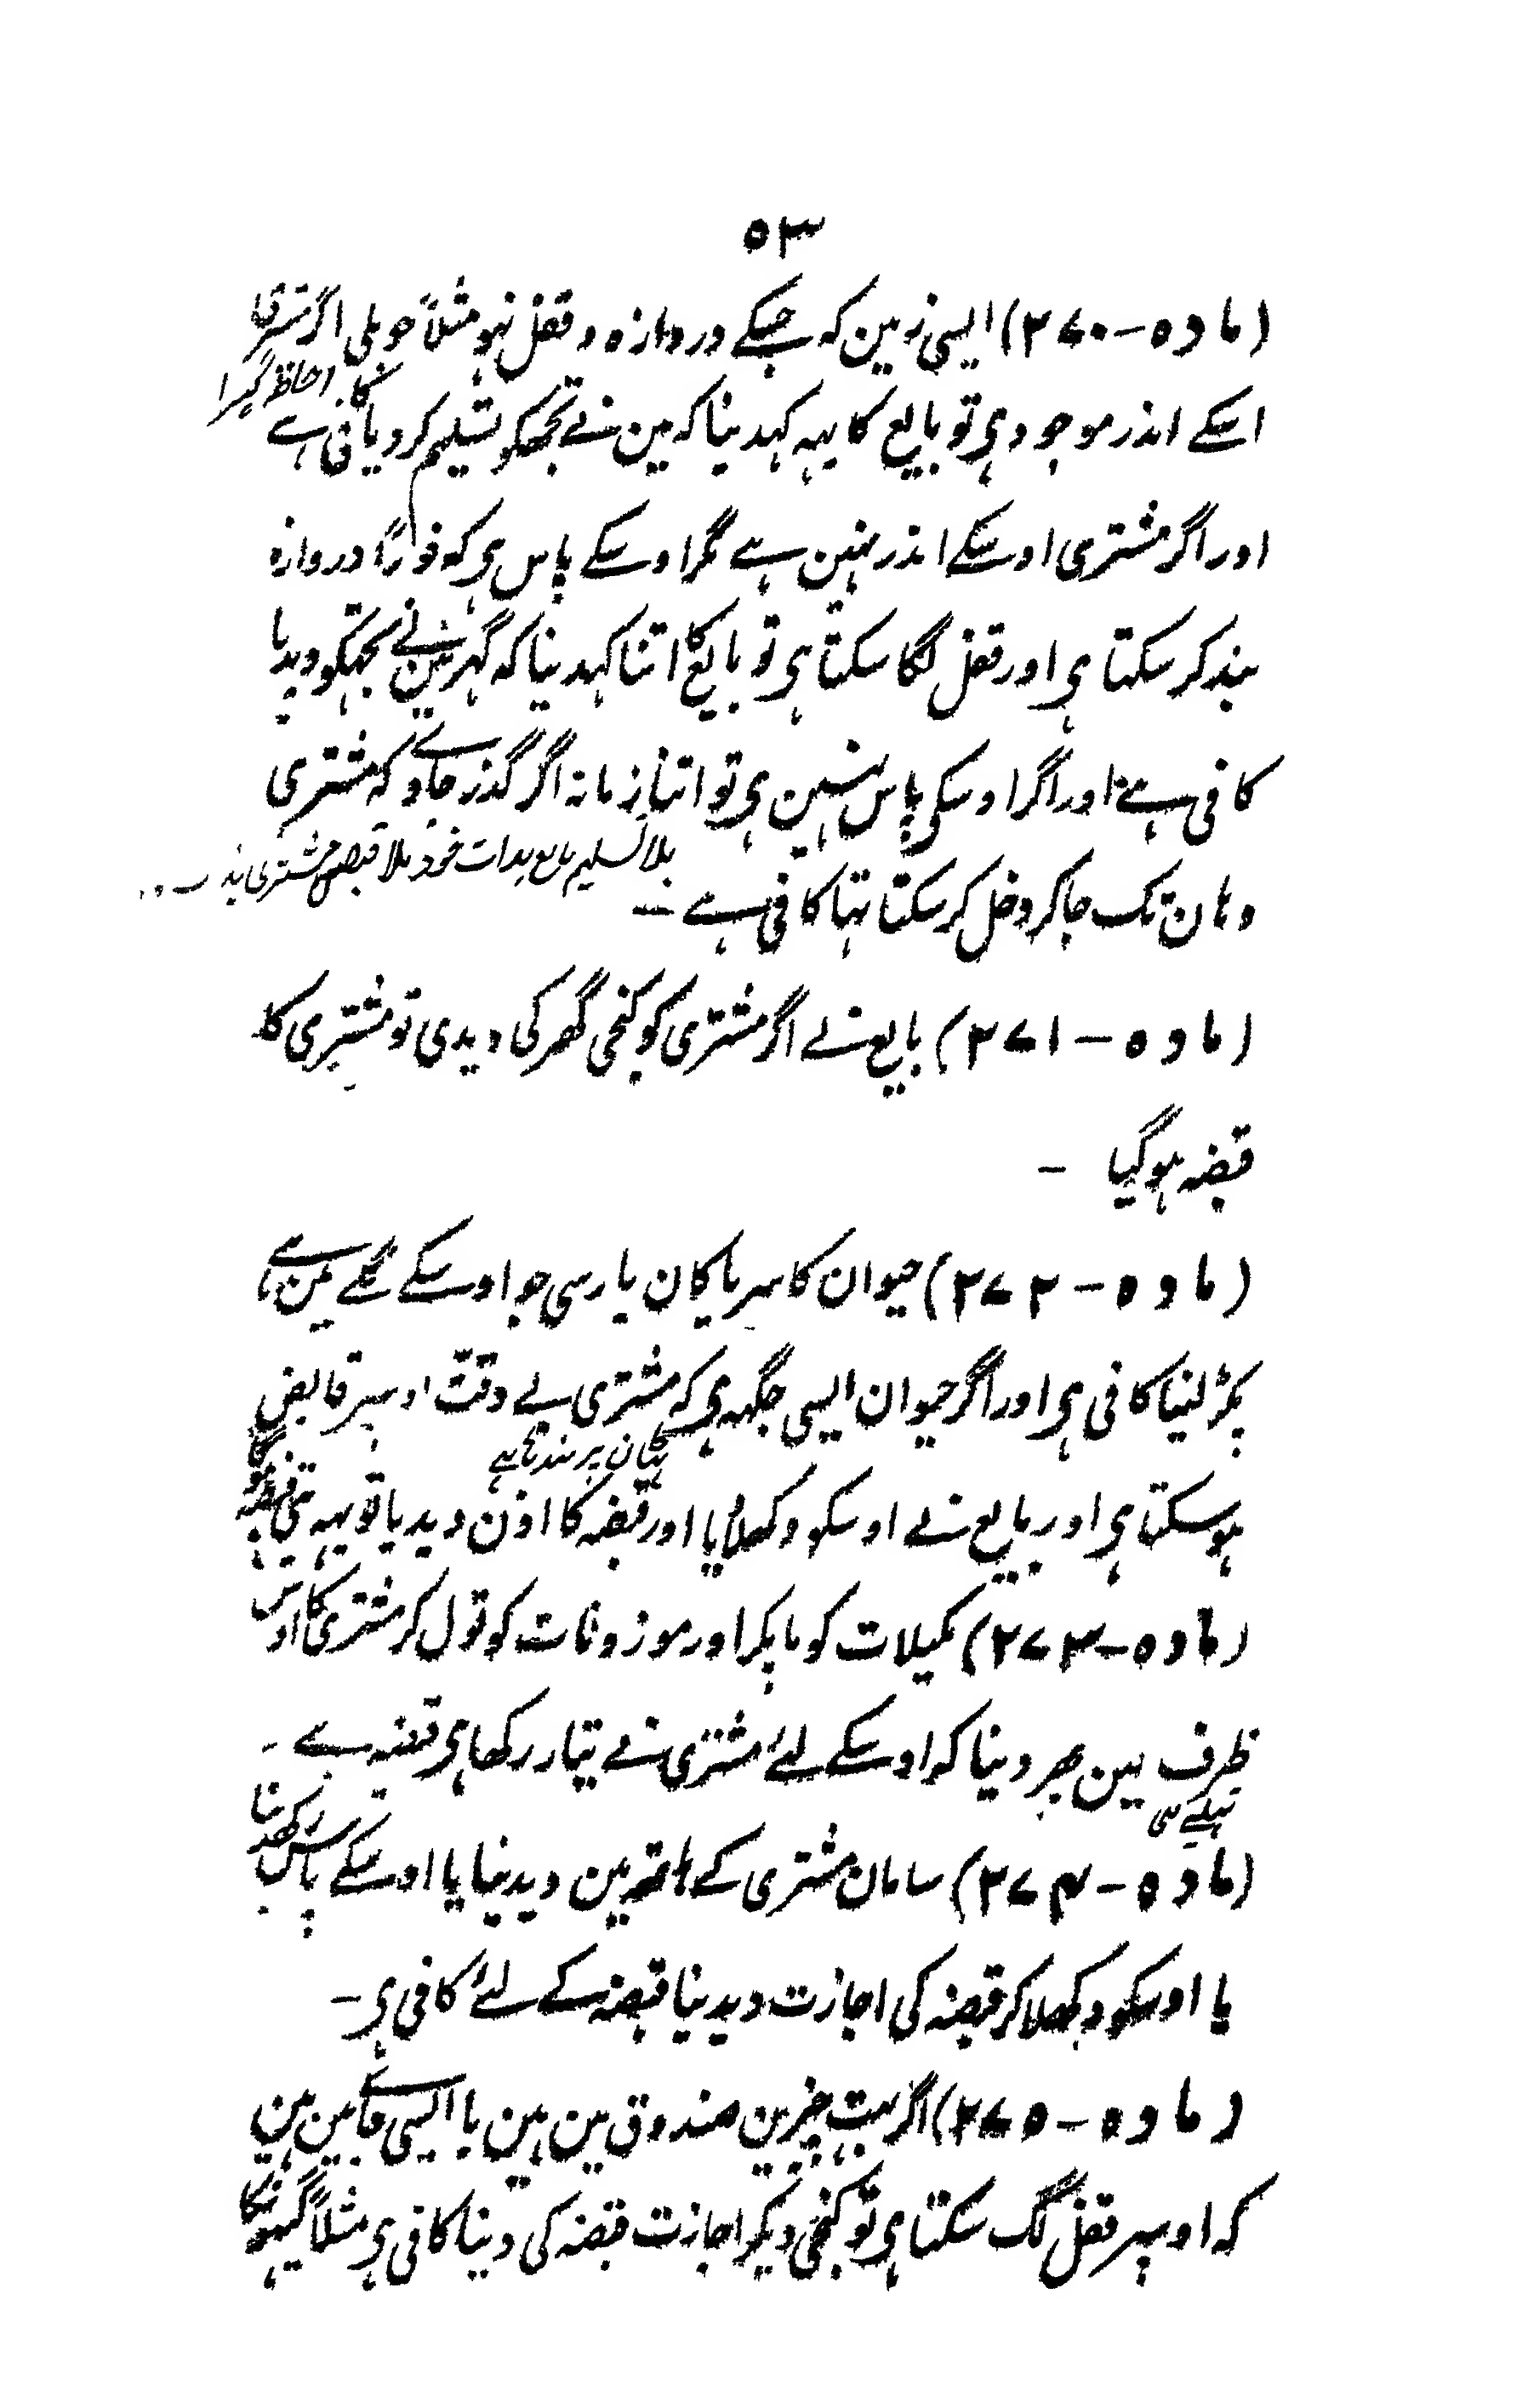 ۵۳
(مادہ-۲۷۰) ایسی زمین کہ جسکے دروازہ و قفل ہو مثلاً حویلی اگر مشتری
احاطہ گہرا
اسکے اندر موجود ہی تو بایع کا یہہ کہدینا کہ مین نے تجھکو تسلیم کر دیا کافی ہے
اور اگر مشتری اوسکے اندر نہین ہے مگر اوسکے پاس ہی کہ فوراً دروازہ
بند کر سکتا ہی اور قفل لگا سکتا ہی تو بایع کا اتنا کہدینا کہ گہر مین نے تجہکو دیدیا
کافی ہے اور اگر اوسکی پاس نہین ہی تو اتنا زمانہ اگر گذر جاوے کہ مشتری
بلا تسلیم بایع بذات خود بلا قبض مشتری
وہان تک جا کر دخل کر سکتا تہا کافی ہے —
(مادہ-۲۷۱) بایع نے اگر مشتری کو کنجی گھر کی دیدی تو مشتری کا
قبضہ ہو گیا -
(مادہ-۲۷۲) حیوان کا سر یا کان یا رسی جو اوسکے گلے مین ہے
پکڑ لینا کافی ہی اور اگر حیوان ایسی جگہہ ہی کہ مشتری بے دقت اوسپر قابض
ہو سکتا ہی اور بایع نے اوسکو دکھلایا اور قبضہ کا اذن دیدیا تو یہہ ہی قبضہ ہوگا
(مادہ-۲۷۳) مکیلات کو ماپکر اور موزونات کو تول کر مشتری کا اوس
ظرف مین بھر دینا کہ اوسکے لئے مشتری نے تیار رکھا ہی قبضہ ہے -
(مادہ-۲۷۴) سامان مشتری کے ہاتھ مین دیدینا یا اوسکے پاس رکھدینا
یا اوسکو دکھلا کر قبضہ کی اجازت دیدینا قبضہ کے لئے کافی ہی -
(مادہ-۲۷۵) اگر بہت چیزین صندوق مین ہین یا ایسی جابے مین ہین
کہ اوسپر قفل لگ سکتا ہی تو کنجی دیکر اجازت قبضہ کی دینا کافی ہی مثلاً گیہونکا